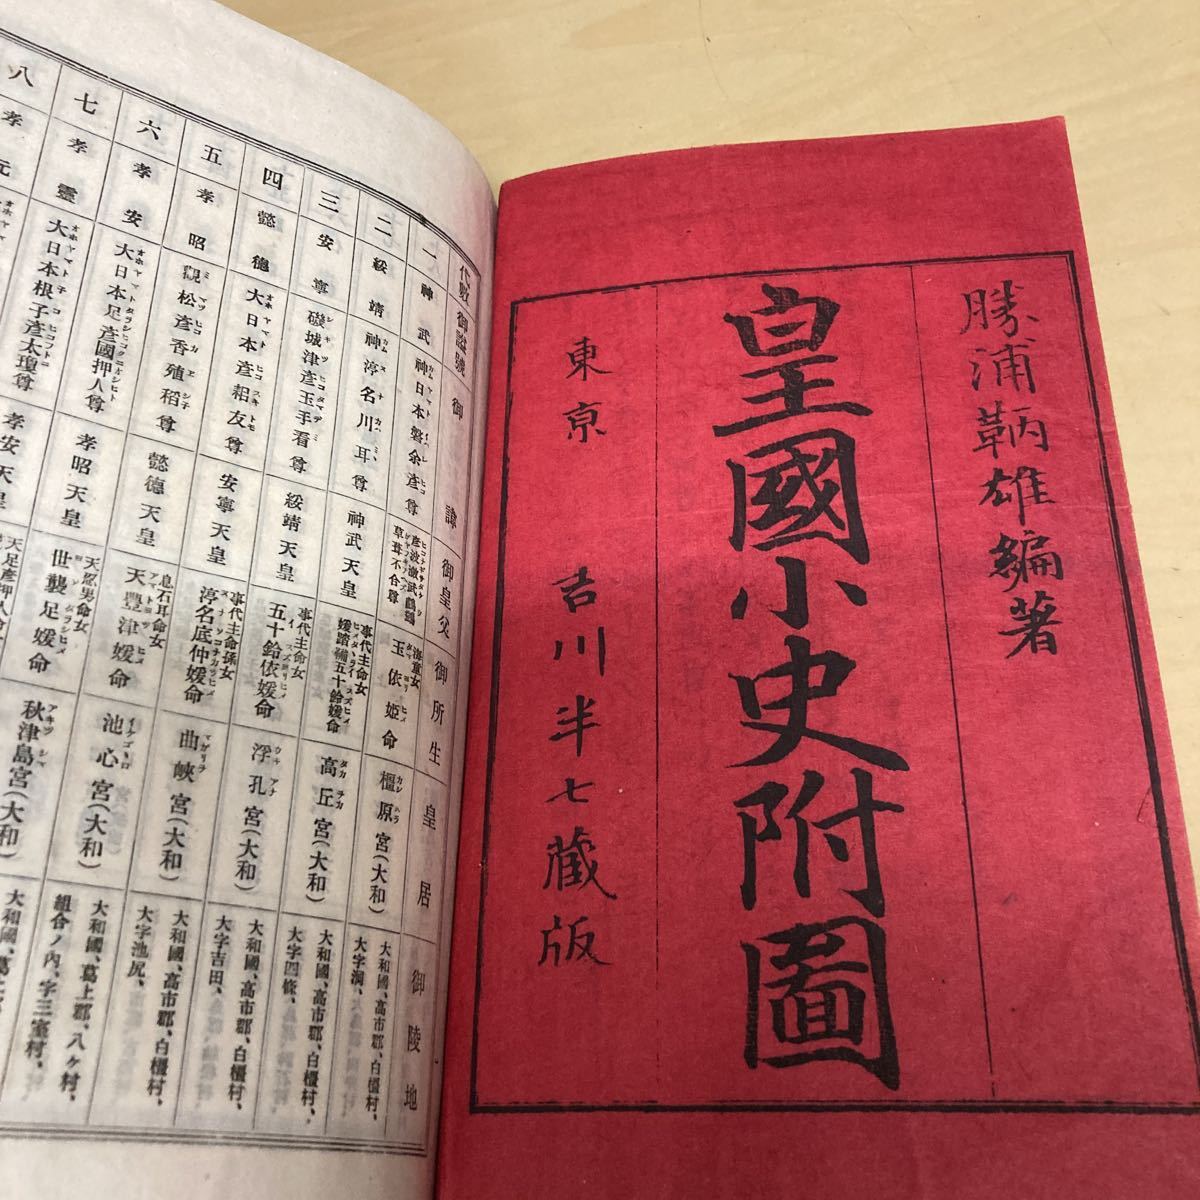 勝浦鞆雄編著
皇國小史附圖
東京 吉川半七藏版
代數 御諡號 御諱 御皇父 御所生 皇居 御陵地
一 神武 神日本磐余彦尊 彦波瀲武鸕鶿草葺不合尊 海童女玉依姫命 橿原宮(大和) 大和國、高市郡、白橿村、大字洞、
二 綏靖 神渟名川耳尊 神武天皇 事代主命女媛蹈鞴五十鈴媛命 高丘宮(大和) 大和國、高市郡、白橿村、大字四條、
三 安寧 磯城津彦玉手看尊 綏靖天皇 事代主命女五十鈴依媛命 浮孔宮(大和) 大和國、高市郡、白橿村、大字吉田、
四 懿德 大日本彦耜友尊 安寧天皇 事代主命孫女渟名底仲媛命 曲峽宮(大和) 大和國、高市郡、白橿村、大字池尻、
五 孝昭 觀松彦香殖稻尊 懿德天皇 息石耳命女天豐津媛命 池心宮(大和) 大和國、葛上郡、八ヶ村、組合ノ内、字三室村、
六 孝安 大日本足彦國押人尊 孝昭天皇 天忍男命女世襲足媛命 秋津島宮(大和) 大和國、
七 孝靈 大日本根子彦太瓊尊 孝安天皇 天足彦押人命
八 孝元